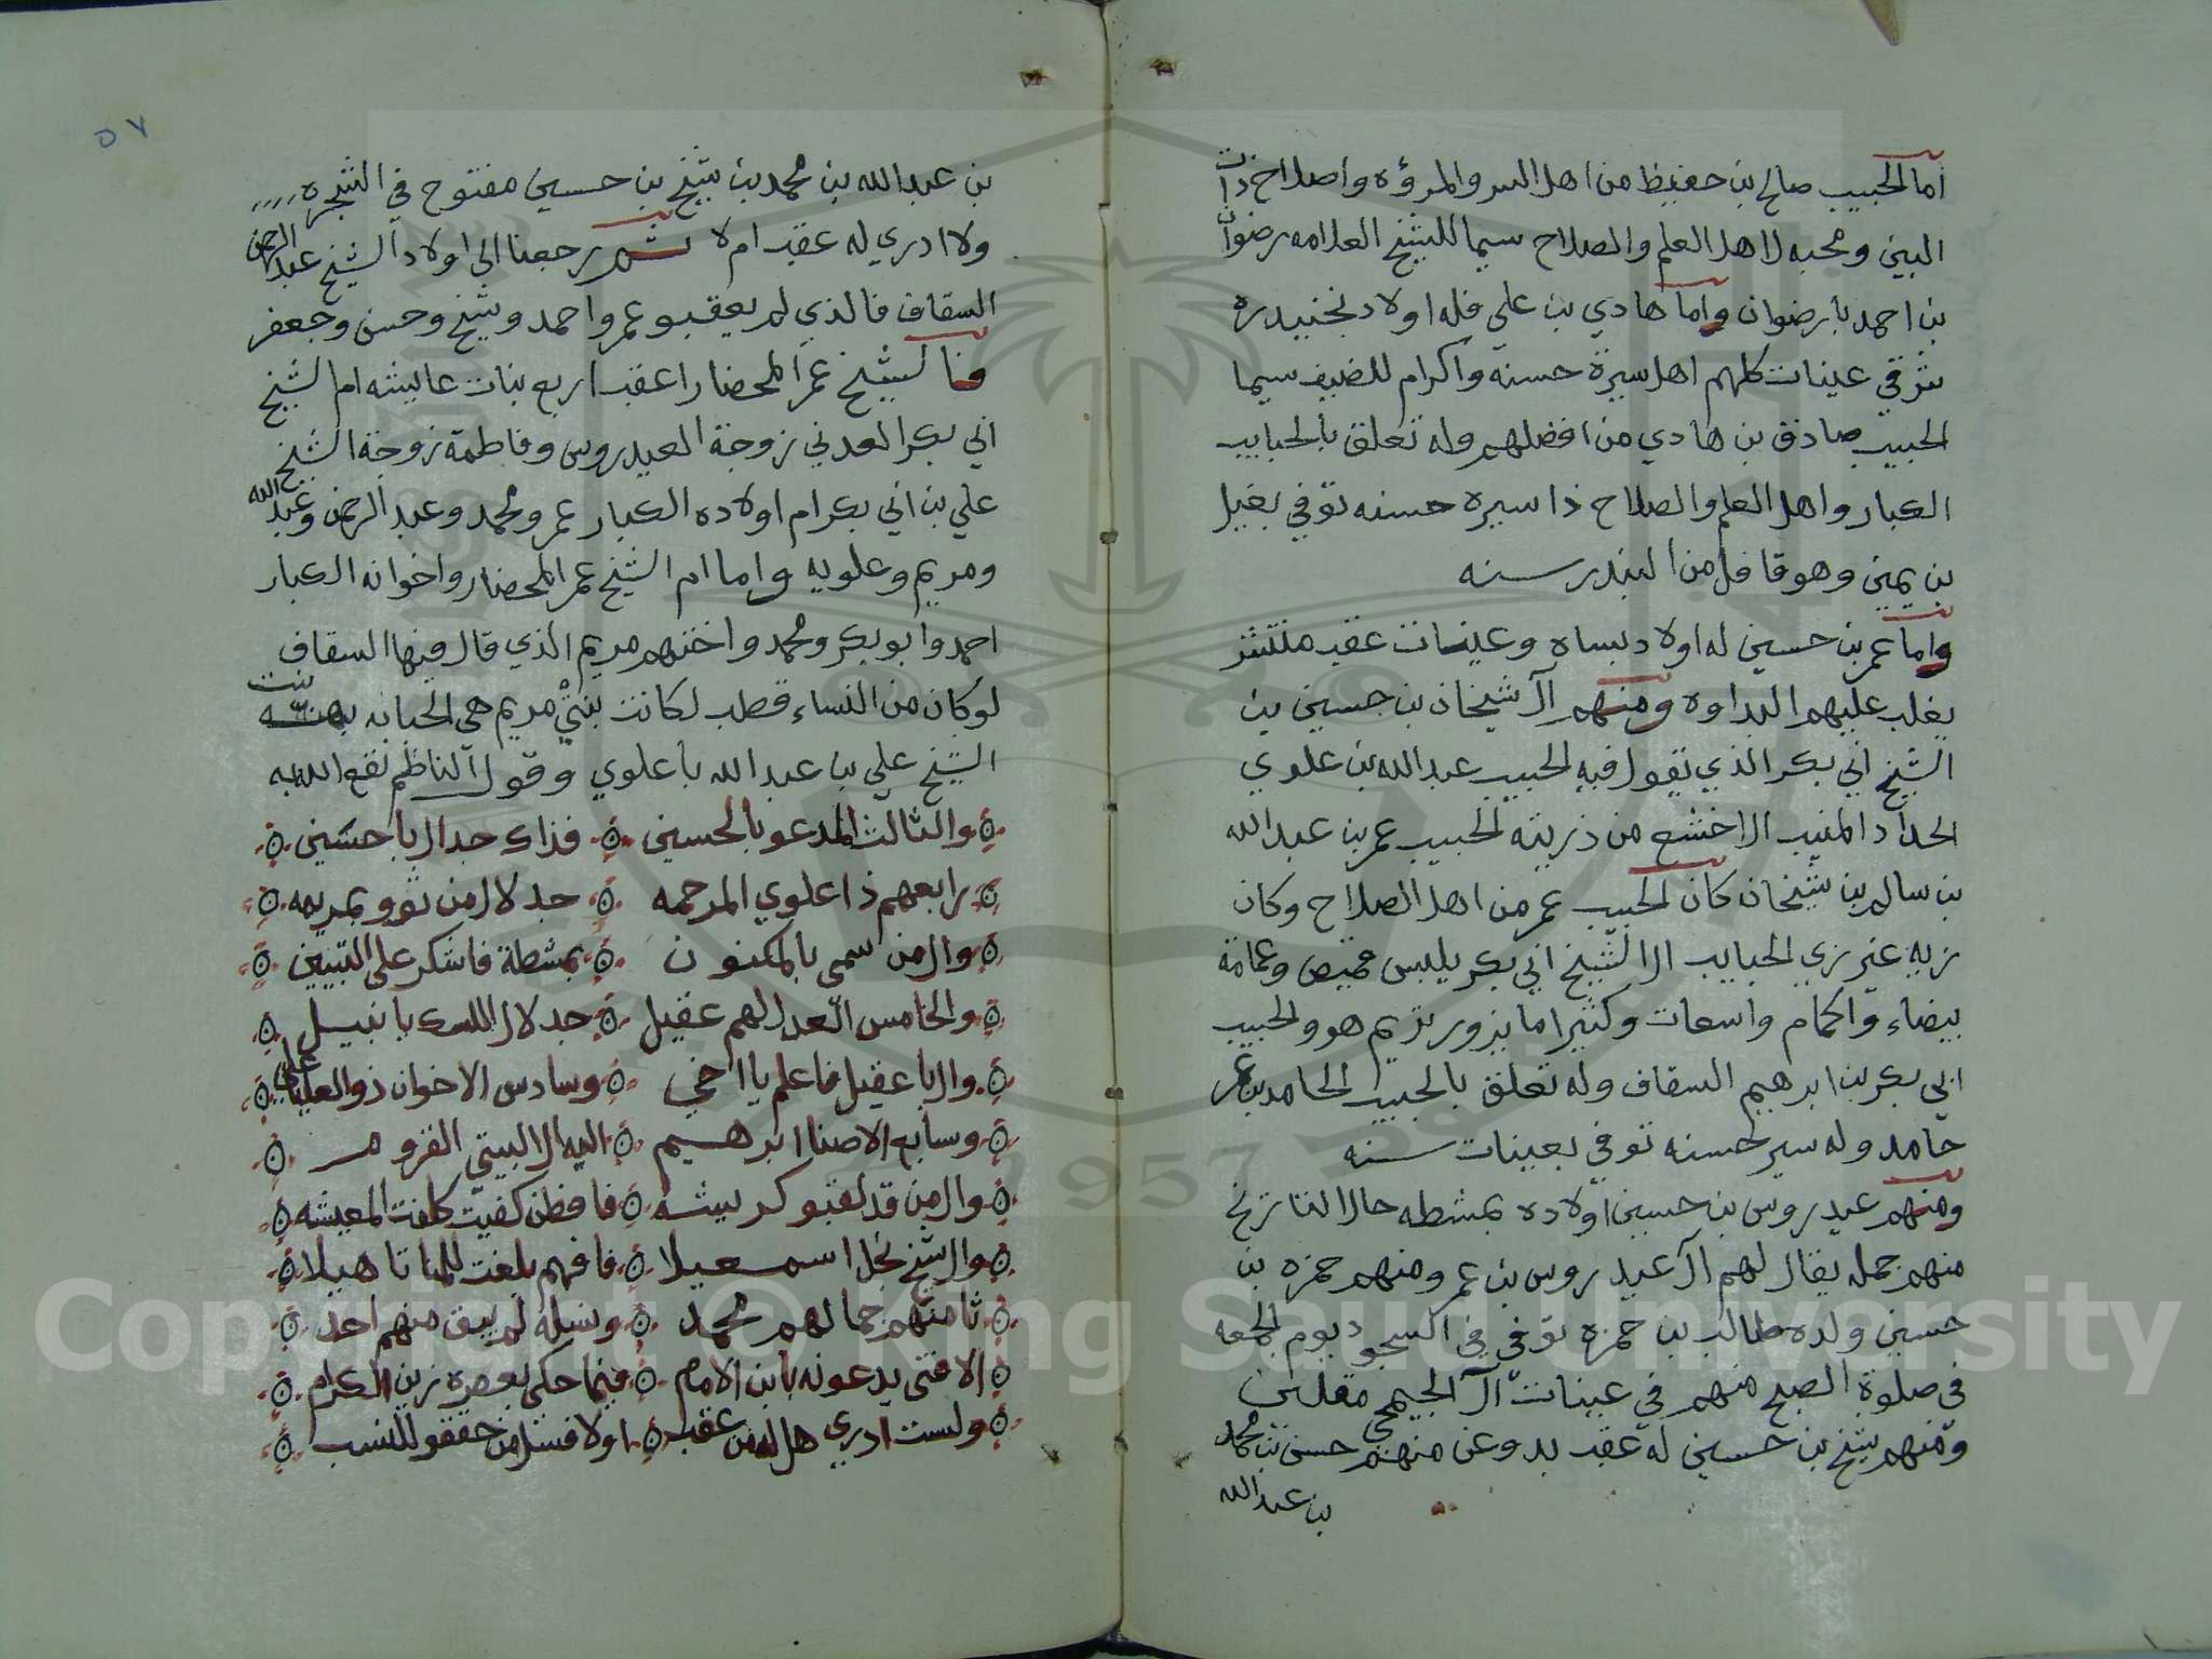 اما الحبيب صالح بن حفيظ من اهل السر والمرؤه واصلاح ذات
البين ومحبه لاهل العلم والصلاح سيما للشيخ العلامه رضوان
بن احمد بارضوان واما هادي بن علي فله اولاد بخنيدره
شرقي عينات كلهم اهل سيرة حسنه واكرام للضيف سيما
الحبيب صادق بن هادي من افضلهم وله تعلق بالحبايب
الكبار واهل العلم والصلاح ذا سيره حسنه توفي بغيل
بن يمين وهو قافل من البندر سنه
واما عمر بن حسين له اولاد بساه وعينات عقبه منتشر
يغلب عليهم البداوه ومنهم آل شيخان بن حسين بن
الشيخ ابي بكر الذي تقول فيه الحبيب عبد الله بن علوي
الحداد المنيب الاخشع من ذريته الحبيب عمر بن عبد الله
بن سالم بن شيخان كان الحبيب عمر من اهل الصلاح وكان
زيه غير زي الحبايب ال الشيخ ابي بكر يلبس قميص وعمامة
بيضاء واكمام واسعات وكثيرا ما يزور تريم هو والحبيب
ابي بكر بن ابرهيم السقاف وله تعلق بالحبيب الحامد بن عمر
حامد وله سير حسنه توفي بعينات سنه
ومنهم عيدروس بن حسين اولاده بمشطه حال التاريخ
منهم جمله يقال لهم آل عيدروس بن عمر ومنهم حمزه بن
حسين ولده طالب بن حمزه توفي في السجود يوم الجمعه
في صلوة الصبح منهم في عينات آل الجيمحي مقلين
ومنهم شيخ بن حسين له عقب بدوعن منهم حسن بن محمد
بن عبد الله
٥٧
بن عبد الله بن محمد بن شيخ بن حسين مفتوح في الشجره
ولا ادري له عقب ام لا ثم رجعنا الى اولاد الشيخ عبد الرحمن
السقاف فالذي لم يعقبو عمر واحمد وشيخ وحسن وجعفر
فالشيخ عمر المحضار اعقب اربع بنات عايشه ام الشيخ
ابي بكر العدني زوجة العيدروس وفاطمة زوجة الشيخ
علي بن ابي بكر ام اولاده الكبار عمر ومحمد وعبد الرحمن وعبد الله
ومريم وعلويه واما ام الشيخ عمر المحضار واخوانه الكبار
احمد وابو بكر ومحمد واختهم مريم الذي قال فيها السقاف
لو كان من النساء قطب لكانت بنتي مريم هي الحبابه بنت
الشيخ علي بن عبد الله باعلوي وقول الناظم نفع الله به
والثالث المدعو بالحسين فذاك جد ال باحسين
رابعهم ذا علوي المرحمه جد لال من ثوو بمريمه
وال من سمي بالمكنون بمشطة فاشكر على التبيين
والخامس العدل لهم عقيل جد لال اللسك يا نبيل
وال باعقيل فاعلم يا اخي وسادس الاخوان ذو العليا علي
وسابع الاصنا ابرهيم اليه ال البيتي القروم
وال من قد لقبو كريشه فافطن كفيت كلفت المعيشه
وال شيخ نجل اسمعيلا فافهم بلغت للمنا تاهيلا
ثامنهم جمالهم محمد ونسله لم يبق منهم احد
الا فتى يدعونه بابن الامام فيما حكى بعصره زين الكرام
ولست ادري هل له من عقب اولا فسل من حققو للنسب
Copyright © King Saud University
1957